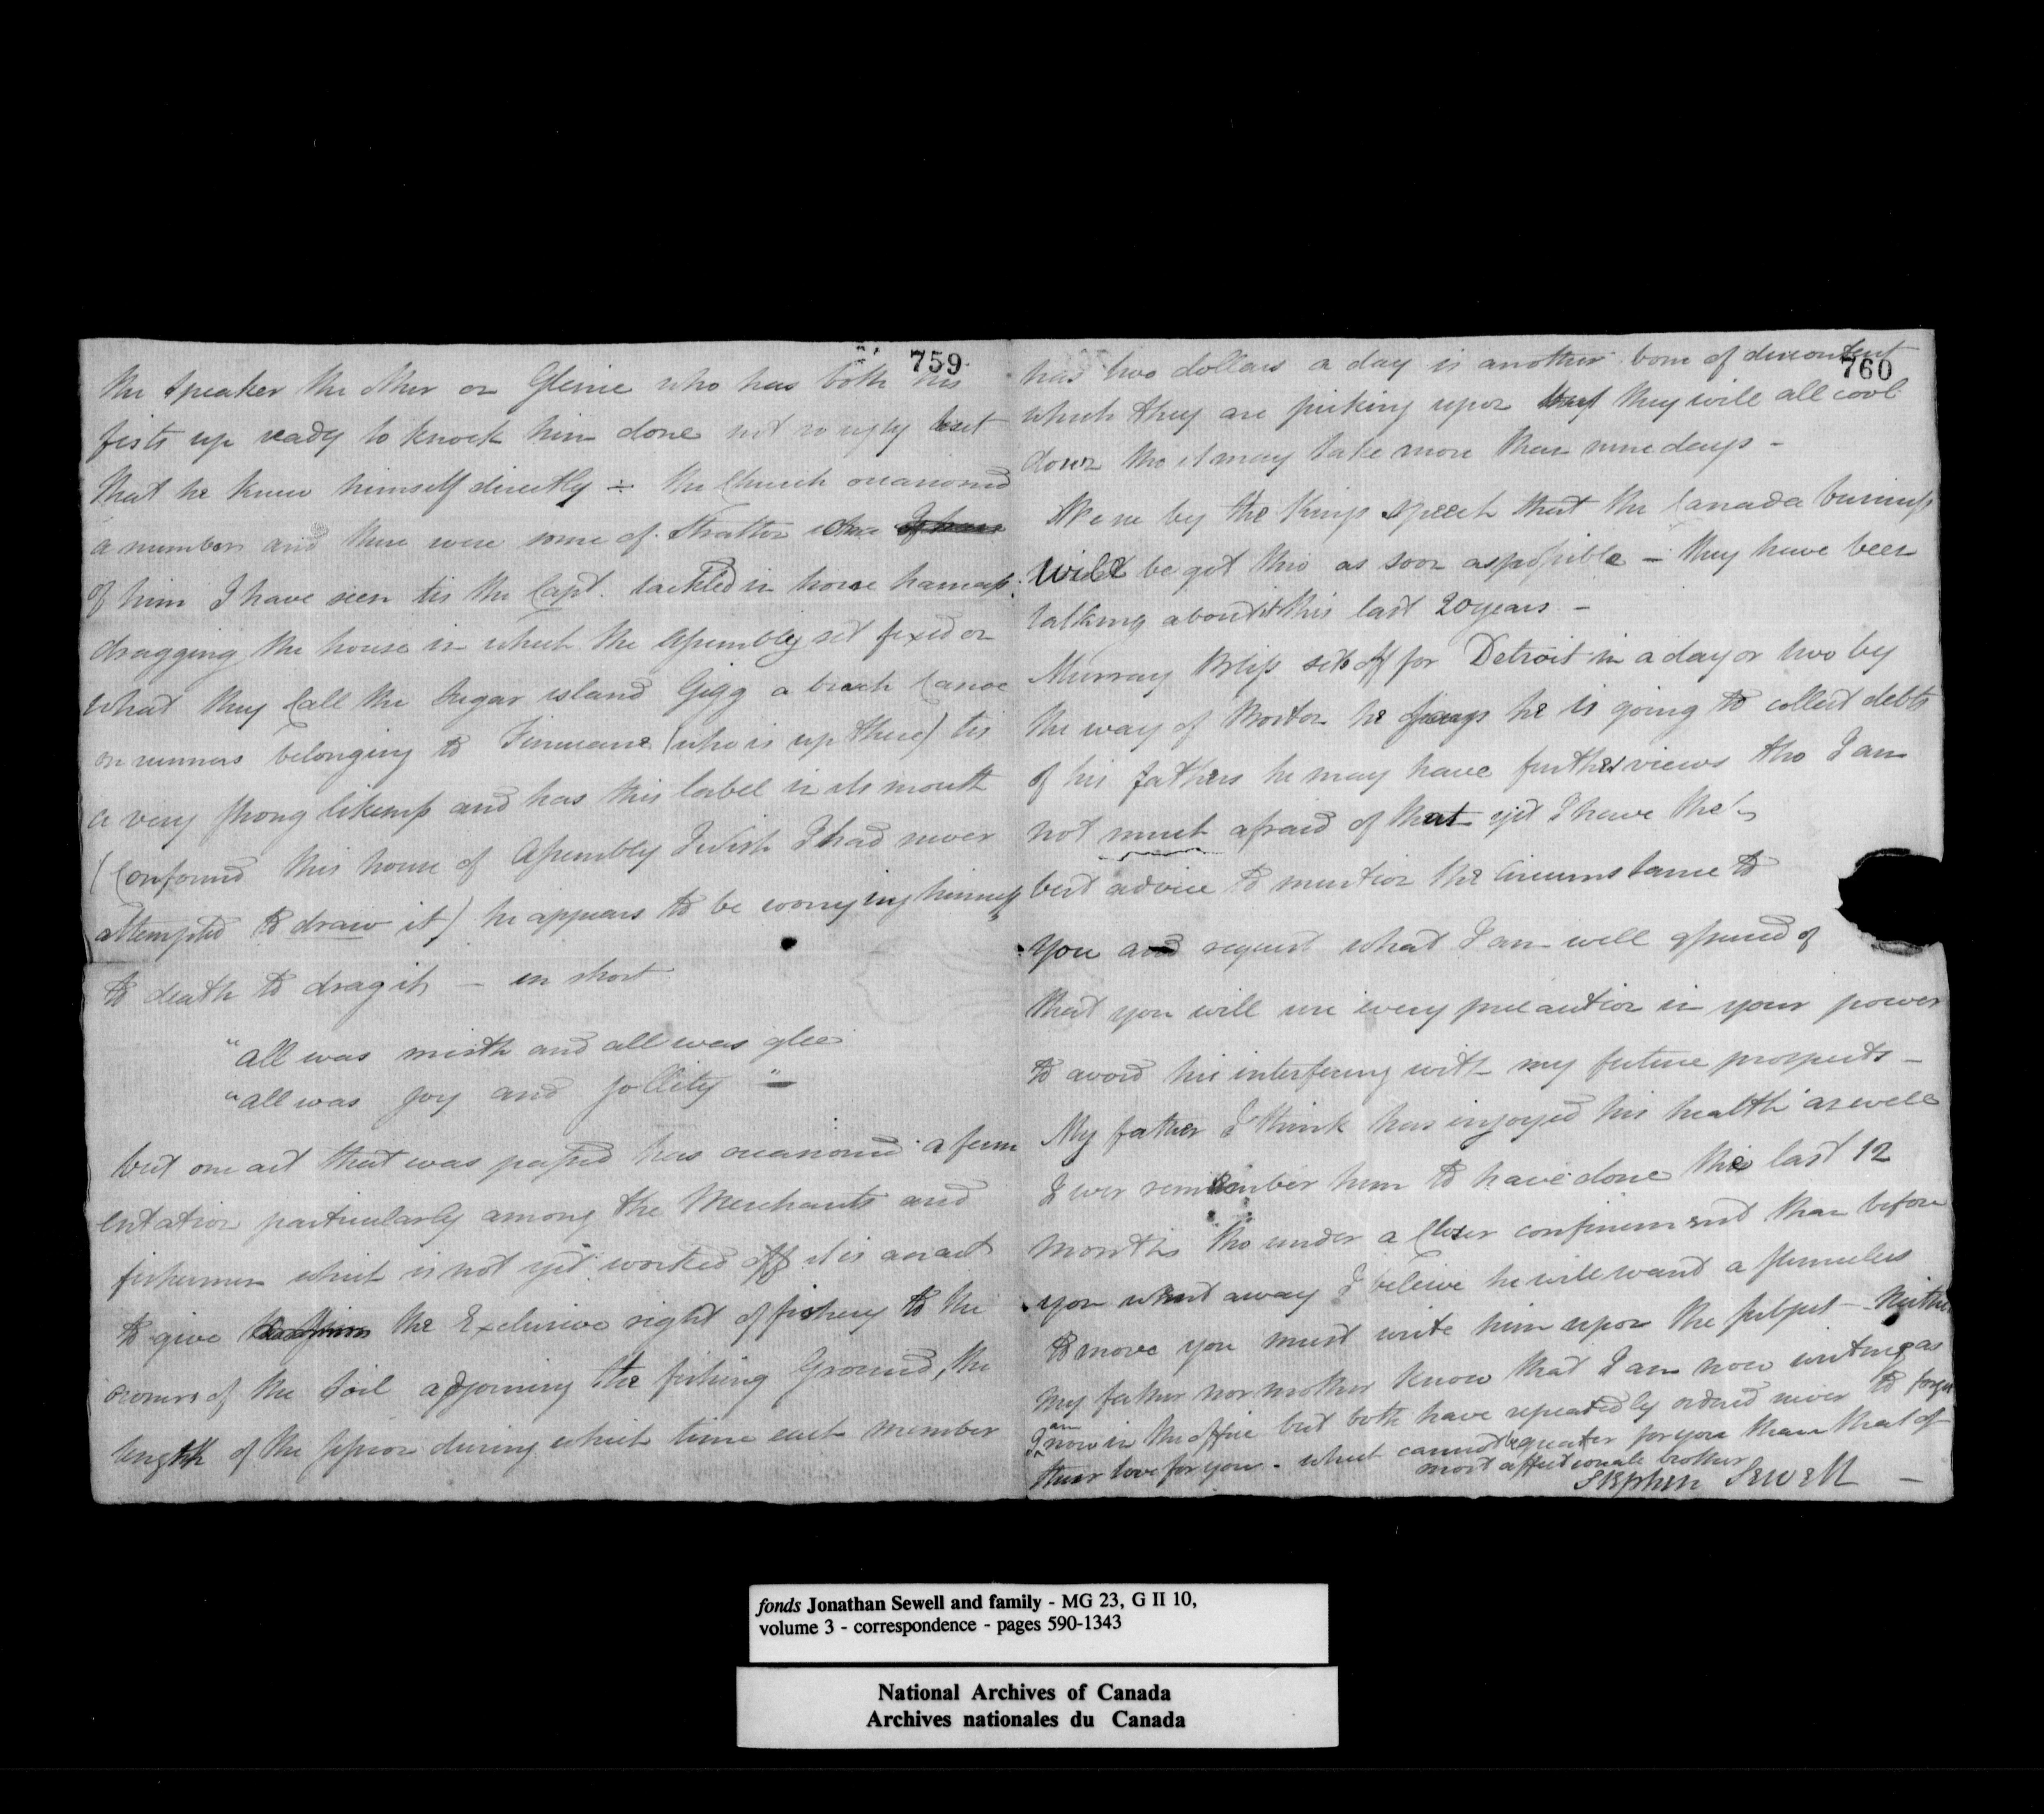 759
the speaker the other on Glenie who has both his
fists up ready to knock him done not so ugly but
that he knew himself directly ÷ the Church occasioned
a number and there were some of Stratton one
of him I have seen tis the Capt. tackled in horse harness
dragging the house in which the Assembly set fixed on
what they Call the Sugar island Gigg a birch Canoe
on runners belonging to (who is up there) tis
a very strong likeness and has this label in its mouth
(Confound this house of Assembly I wish I had never
attempted to draw it) he appears to be worrying himself
to death to drag it - in short
"all was mirth and all was glee
"all was joy and jollity" -
but one act that was passed has occasioned a ferm
entation particularly among the Merchants and
fishermen which is not yet worked off it is an act
to give the Exclusive right of fishery to the
owners of the Soil adjoining the fishing Ground, the
length of the session during which time each member
760
has two dollars a day is another bone of discontent
which they are picking upon but they will all cool
down tho it may take more than nine days -
We see by the Kings speech that the Canada business
will be got thro as soon as possible - they have been
talking about it this last 20 years -
Murray Bliss sets off for Detroit in a day or two by
the way of Boston he says he is going to collect debts
of his fathers he may have further views tho I am
not much afraid of that yet I have the
best advice to mention the Circumstance to
you and request what I am well assured of
that you will use every precaution in your power
to avoid his interfering with my future prospects -
My father I think has injoyed his health as well
I ever remember him to have done the last 12
months tho under a Closer confinement than before
you went away I beleive he will want a stimulus
to move you must write him upon the subject - Neither
my father nor mother know that I am now writing as
I am now in the office but both have repeatedly ordered never to forget
their love for you - which cannot be greater for you than that of
most affectionate brother
Stephen Sewell -
fonds Jonathan Sewell and family - MG 23, G II 10,
volume 3 - correspondence - pages 590-1343
National Archives of Canada
Archives nationales du Canada